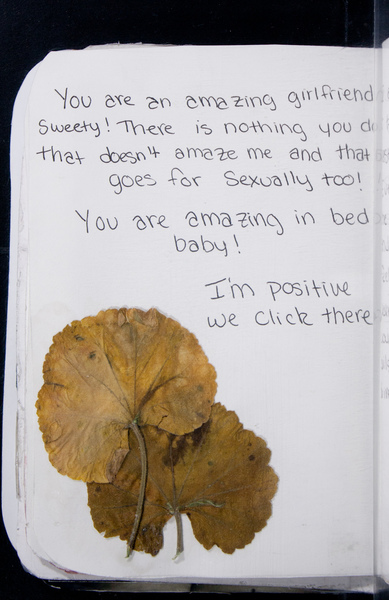 You are an amazing girlfriend
Sweety! There is nothing you do
that doesn't amaze me and that
goes for Sexually too!
You are amazing in bed
baby!
I'm positive
we click there